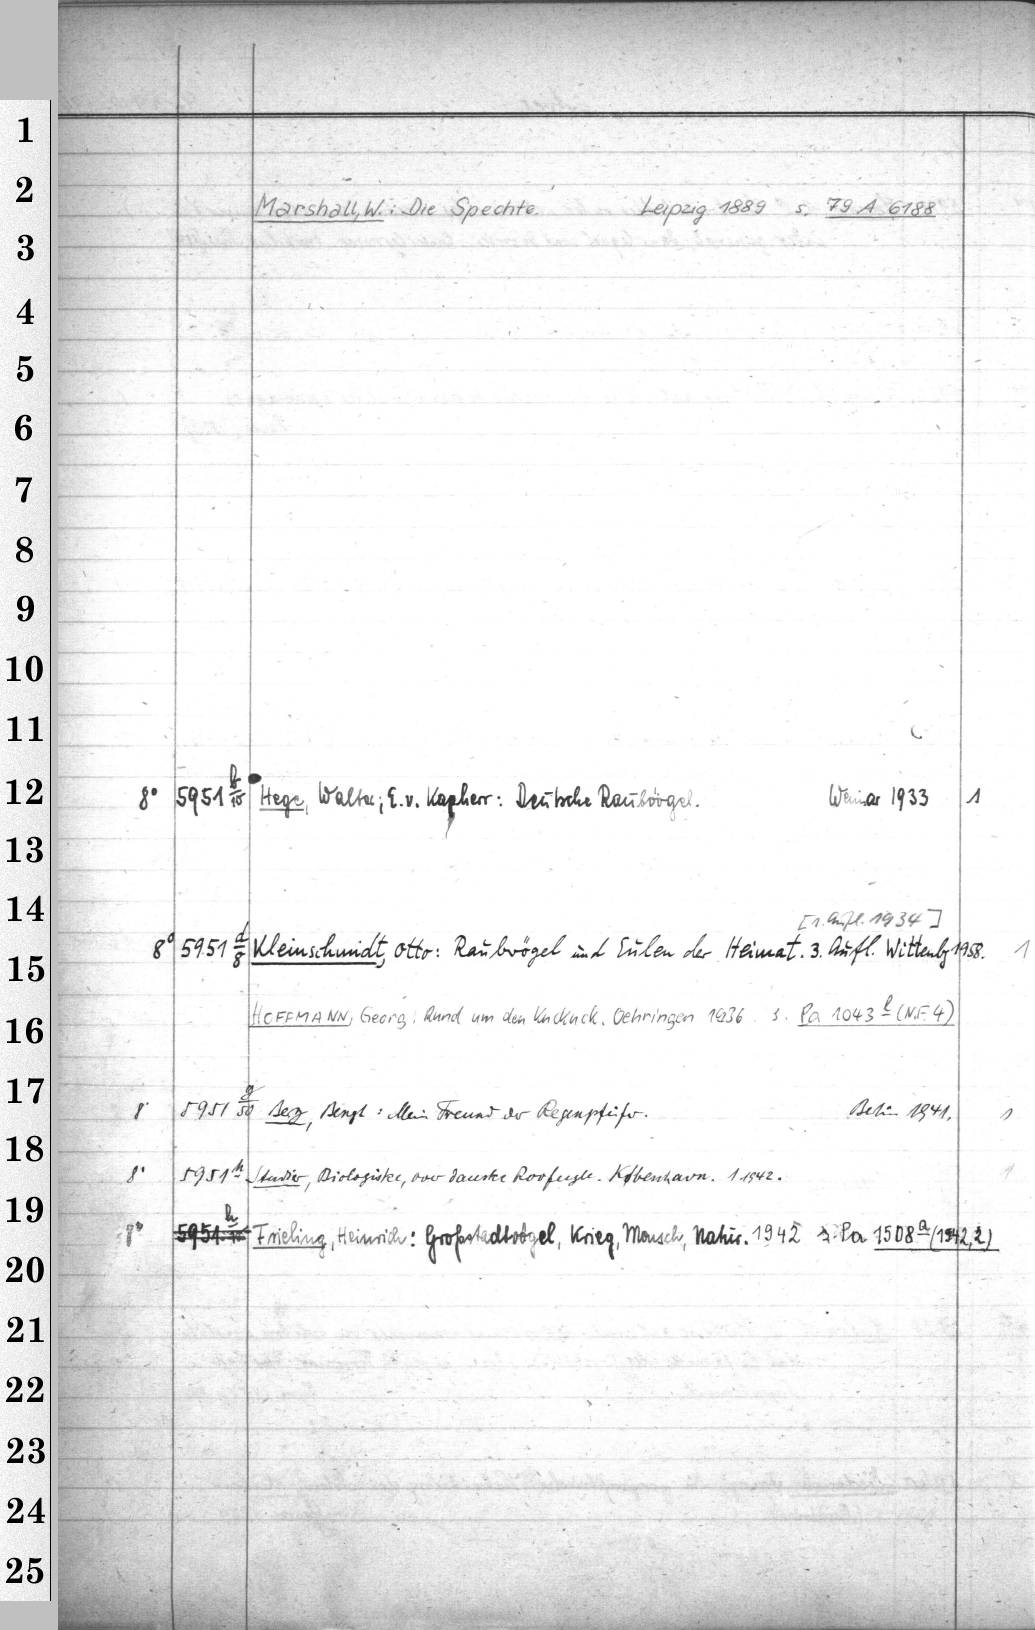 1
2
Marshall, W.: Die Spechte. Leipzig 1889 s. 79 A 6188
3
4
5
6
7
8
9
10
11
12
8° 5951 b/15 Hege, Walter; E. v. Kapherr: Deutsche Raubvögel. Weimar 1933 1
13
14
[1. Aufl. 1934]
8° 5951 d/8 Kleinschmidt, Otto: Raubvögel und Eulen der Heimat. 3. Aufl. Wittenbg 1958. 1
15
HOFFMANN, Georg: Rund um den Kuckuck. Oehringen 1936 s. Pa 1043 b (N.F. 4)
16
17
8° 5951 g/50 Berg, Bengt: Mein Freund der Regenpfeifer. Berlin 1941. 1
18
8° 5951 h Studier, Biologiske, over danske Rovfugle. København. 1 1942. 1
19
8° 5951 h/10 Frieling, Heinrich: Großstadtvögel, Krieg, Mensch, Natur. 1942 s. Pa 1508 a (1942,2)
20
21
22
23
24
25